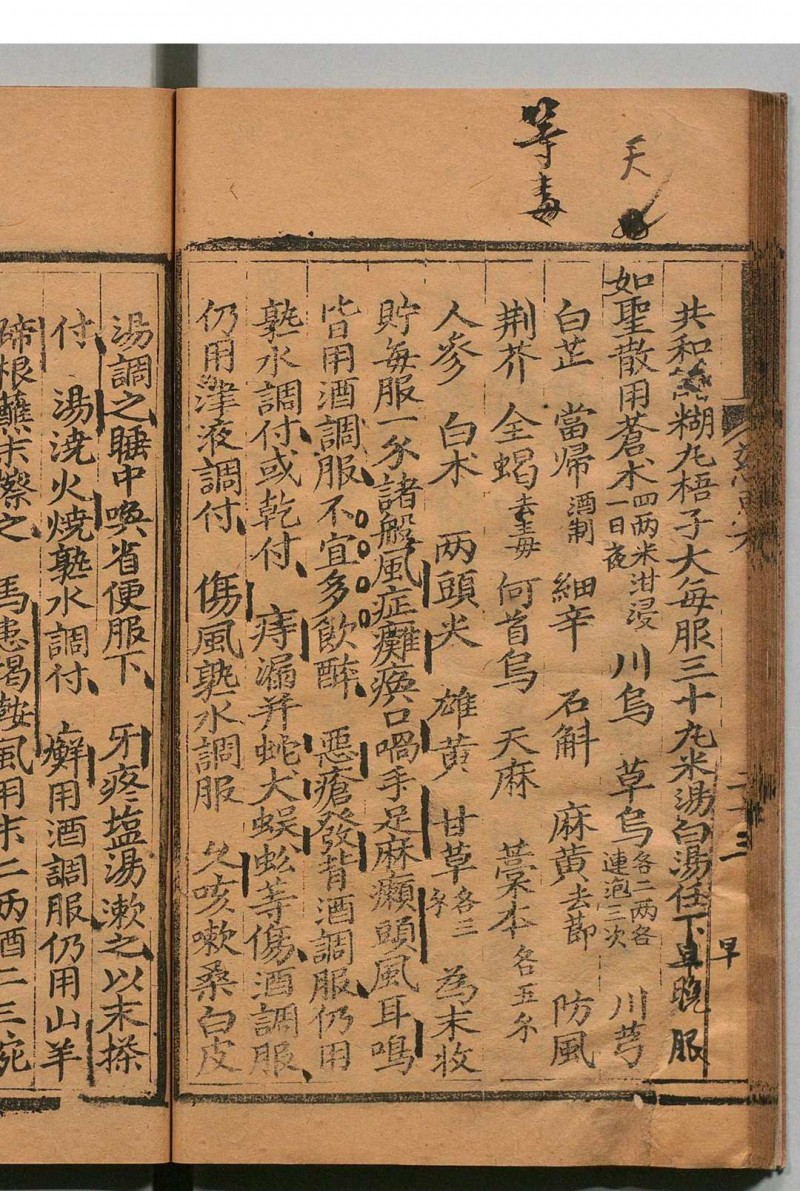 天
等毒
共和糊丸梧子大每服三十丸米湯白湯任下早晚服
早
如聖散用蒼朮四两米泔浸一日夜川烏 草烏各二两各連泡三次 川芎
白芷 當歸酒制 細辛 石斛 麻黄去節 防風
荆芥 全蝎去毒 何首烏 天麻 藁本各五分
人參 白朮 两頭尖 雄黄 甘草各三分 為末收
貯每服一分諸般風症癱瘓口喎手足麻癩頭風耳鳴
皆用酒調服不宜多飲醉 惡瘡發背酒調服仍用
熟水調付或乾付 痔漏并蛇犬蜈蚣等傷酒調服
仍用津液調付 傷風熟水調服 久咳嗽桑白皮
湯調之睡中喚省便服下 牙疼塩湯漱之以末搽
付 湯澆火燒熟水調付 癬用酒調服仍用山羊
蹄根蘸末擦之 馬患揭鞍風用末二两酒二三碗